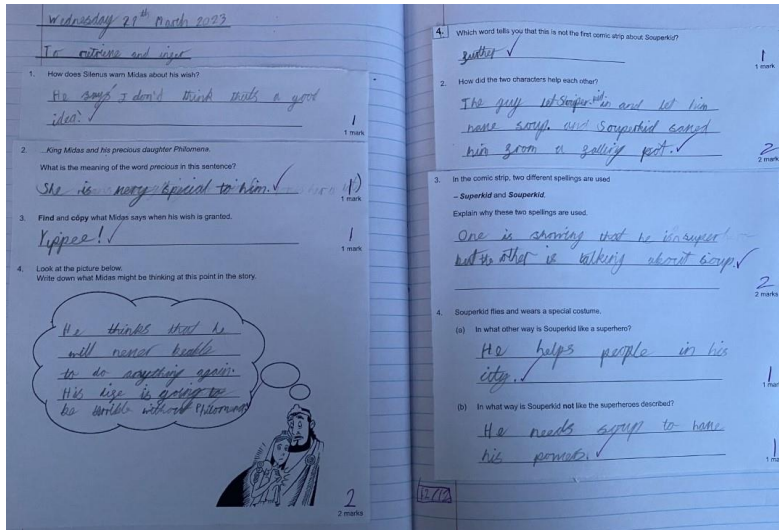 Wednesday 29th March 2023
To retrieve and infer
1. How does Silenus warn Midas about his wish?
He says I don't think thats a good
idea.
1
1 mark
2. ...King Midas and his precious daughter Philomena.
What is the meaning of the word precious in this sentence?
She is very special to him.
1
1 mark
3. Find and copy what Midas says when his wish is granted.
Yippee!
1
1 mark
4. Look at the picture below.
Write down what Midas might be thinking at this point in the story.
He thinks that he
will never be able
to do anything again.
His life is going to
be terrible without Philomena
2
2 marks
4. Which word tells you that this is not the first comic strip about Souperkid?
further
1
1 mark
2. How did the two characters help each other?
The guy let Souper kid in and let him
have soup. and Souperkid saved
him from a falling pot.
2
2 mark
3. In the comic strip, two different spellings are used
– Superkid and Souperkid.
Explain why these two spellings are used.
One is showing that he is super
but the other is talking about soup.
2
2 marks
4. Souperkid flies and wears a special costume.
(a) In what other way is Souperkid like a superhero?
He helps people in his
city.
1
1 mar
(b) In what way is Souperkid not like the superheroes described?
He needs soup to have
his powers.
1
1 ma
12/12